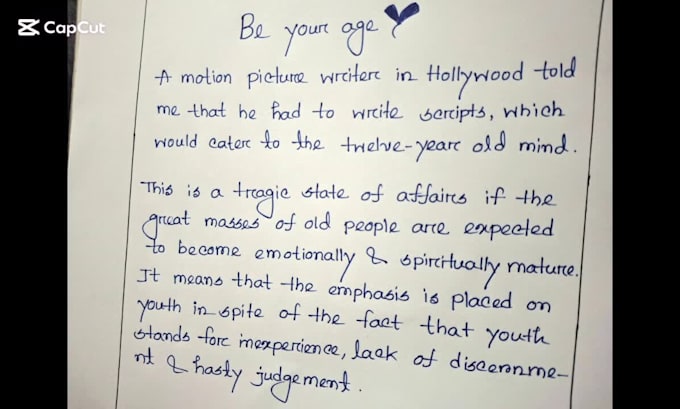 CapCut
Be your age
A motion picture writer in Hollywood told
me that he had to write scripts, which
would cater to the twelve-year old mind.
This is a tragic state of affairs if the
great masses of old people are expected
to become emotionally & spiritually mature.
It means that the emphasis is placed on
youth in spite of the fact that youth
stands for inexperience, lack of discernme-
nt & hasty judgement.